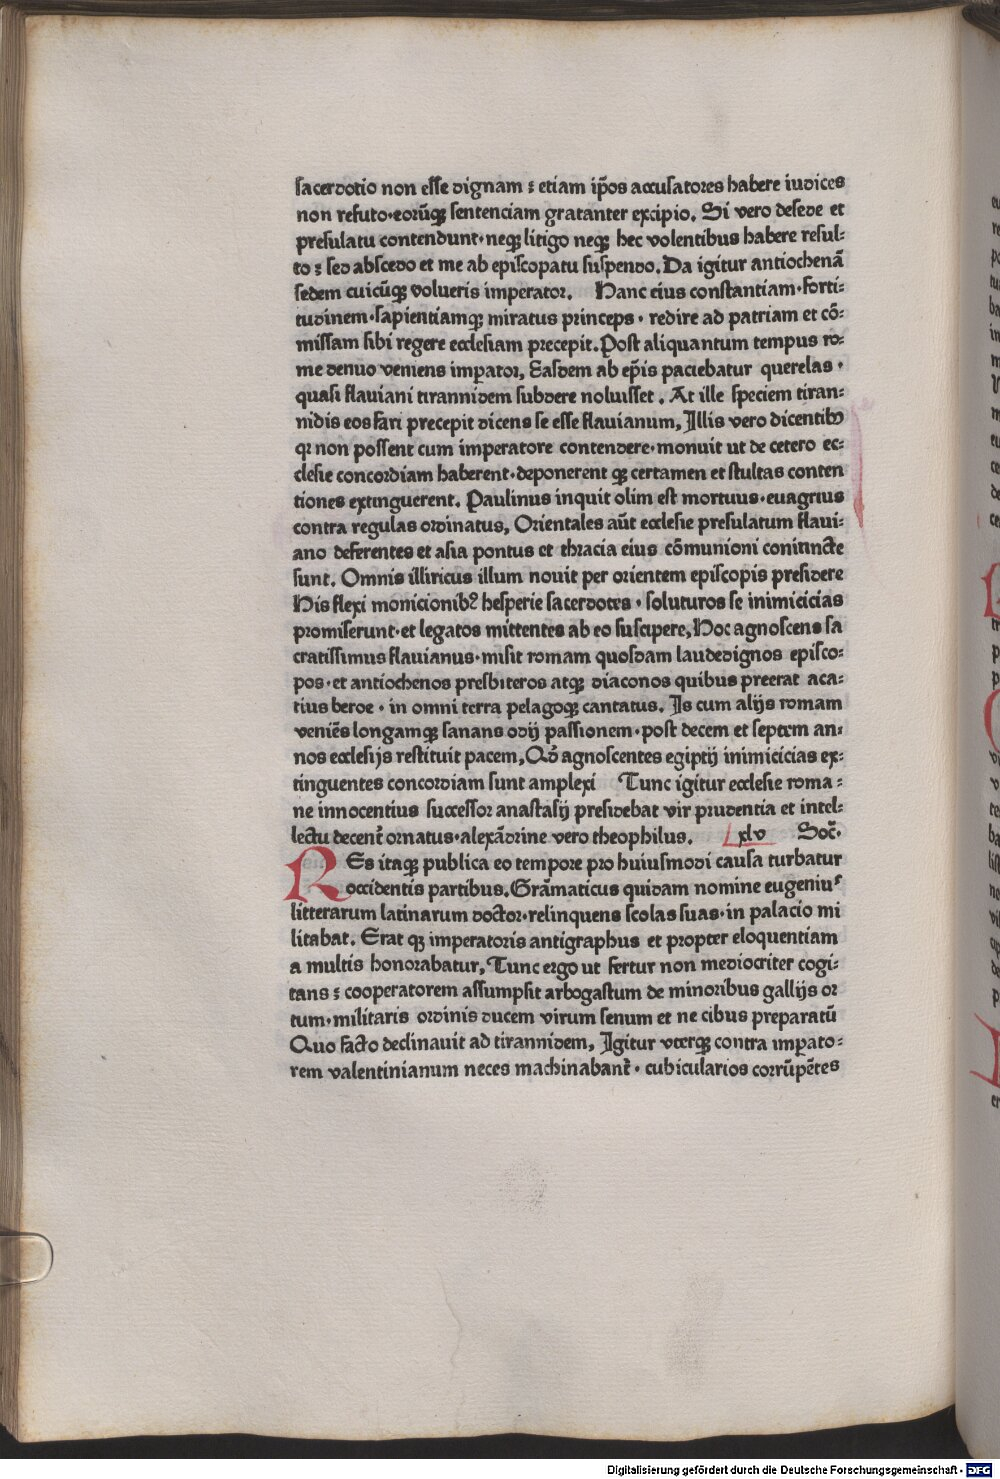 sacerdotio non esse dignam : etiam ip̄os accusatores habere iudices
non refuto·eorūqꝫ sentenciam gratanter excipio. Si vero desede et
presulatu contendunt·neqꝫ litigo neqꝫ hec volentibus habere resul-
to : sed abscedo et me ab episcopatu suspendo. Da igitur antiochenā
sedem cuicūqꝫ volueris imperator. Hanc eius constantiam·forti-
tudinem·sapientiamqꝫ miratus princeps · redire ad patriam et cō-
missam sibi regere ecclesiam precepit. Post aliquantum tempus ro-
me denuo veniens imꝑator, Easdem ab ep̄is paciebatur querelas ·
quasi flauiani tirannidem subdere noluisset. At ille speciem tiran-
nidis eos fari precepit dicens se esse flauianum, Illis vero dicentibꝰ
qꝛ non possent cum imperatore contendere·monuit ut de cetero ec-
clesie concordiam haberent·deponerent qꝫ certamen et stultas conten
tiones extinguerent. Paulinus inquit olim est mortuus·euagrius
contra regulas ordinatus, Orientales aūt ecclesie presulatum flaui-
ano deferentes et asia pontus et thracia eius cōmunioni coniuncte
sunt. Omnis illiricus illum nouit per orientem episcopis presidere
His flexi monicionibꝰ hesperie sacerdotes · soluturos se inimicicias
promiserunt·et legatos mittentes ab eo suscipere, Hoc agnoscens sa
cratissimus flauianus·misit romam quosdam laudedignos episco-
pos·et antiochenos presbiteros atqꝫ diaconos quibus preerat aca-
tius beroe · in omni terra pelagoqꝫ cantatus. Is cum alijs romam
veniēs longamqꝫ sanans odij passionem·post decem et septem an-
nos ecclesijs restituit pacem, Qd̄ agnoscentes egiptij inimicicias ex-
tinguentes concordiam sunt amplexi Tunc igitur ecclesie roma -
ne innocentius successor anastasij presidebat vir prudentia et intel-
lectu decent̄ ornatus·alexādrine vero theophilus. xlv Soc̄·
REs itaqꝫ publica eo tempore pro huiusmodi causa turbatur
occidentis partibus. Grāmaticus quidam nomine eugeniuˢ
litterarum latinarum doctor·relinquens scolas suas·in palacio mi
litabat. Erat qꝫ imperatoris antigraphus et propter eloquentiam
a multis honorabatur, Tunc ergo ut fertur non mediocriter cogi-
tans : cooperatorem assumpsit arbogastum de minoribus gallijs or
tum·militaris ordinis ducem virum senum et ne cibus preparatū
Quo facto declinauit ad tirannidem, Igitur vterqꝫ contra imꝑato-
rem valentinianum neces machinabant̄ · cubicularios corrūpētes
Digitalisierung gefördert durch die Deutsche Forschungsgemeinschaft - DFG